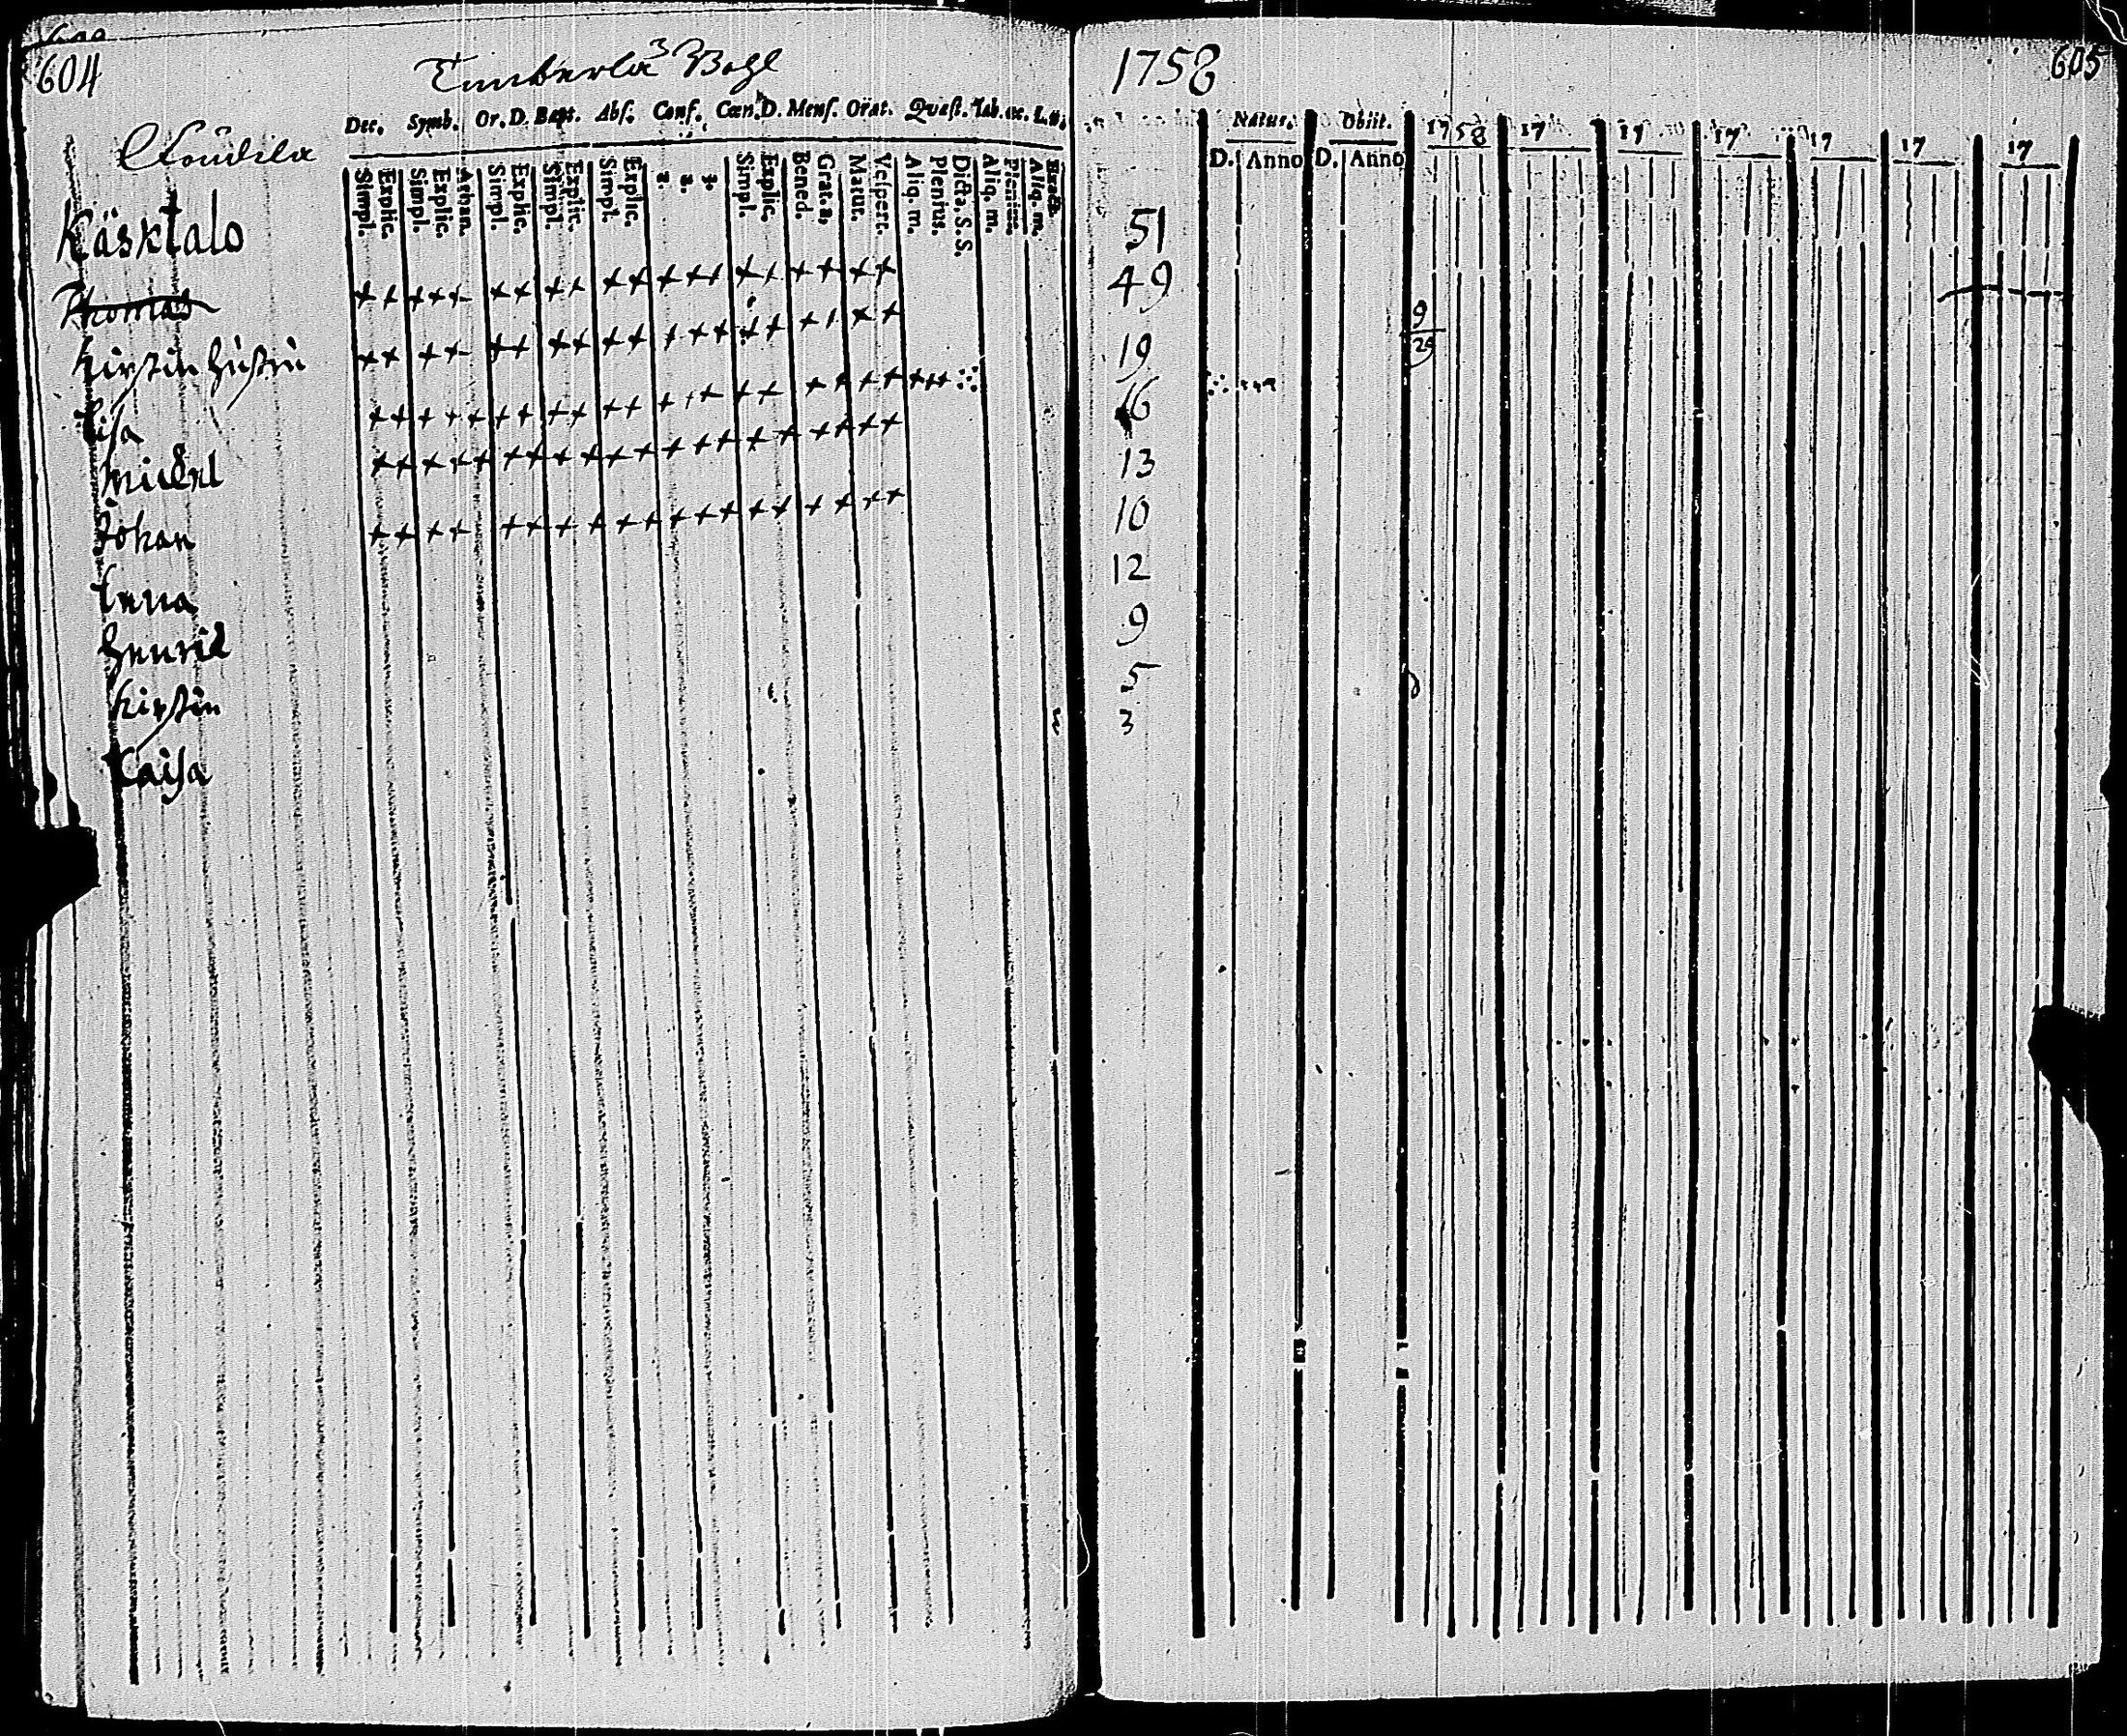 604
3
Dec. Symb. Or. D. Bapt. Abs. Conf. Cœn. D. Mens. Orat. Quæst. Tab. œc. L. n.
Simpl. Explic. Simpl. Explic. Athan. Simpl. Explic. Simpl. Explic. Simpl. Explic. 1. 2. 3. Simpl. Explic. Bened. Grat. a. Matur. Vesper. Aliq. m. Plenius. Dicta. S. S. Aliq. m. Plenius. Aliq. m. Exacte.
Käsktalo
Thomas
Kirstin
Lisa
Michel
Johan
Lena
Henric
Kirstin
Kaisa
1758
605
Natus. Obiit. 1758 17 17 17 17 17 17
D. Anno D. Anno
51
49
9
29
19
16
13
10
12
9
5
3